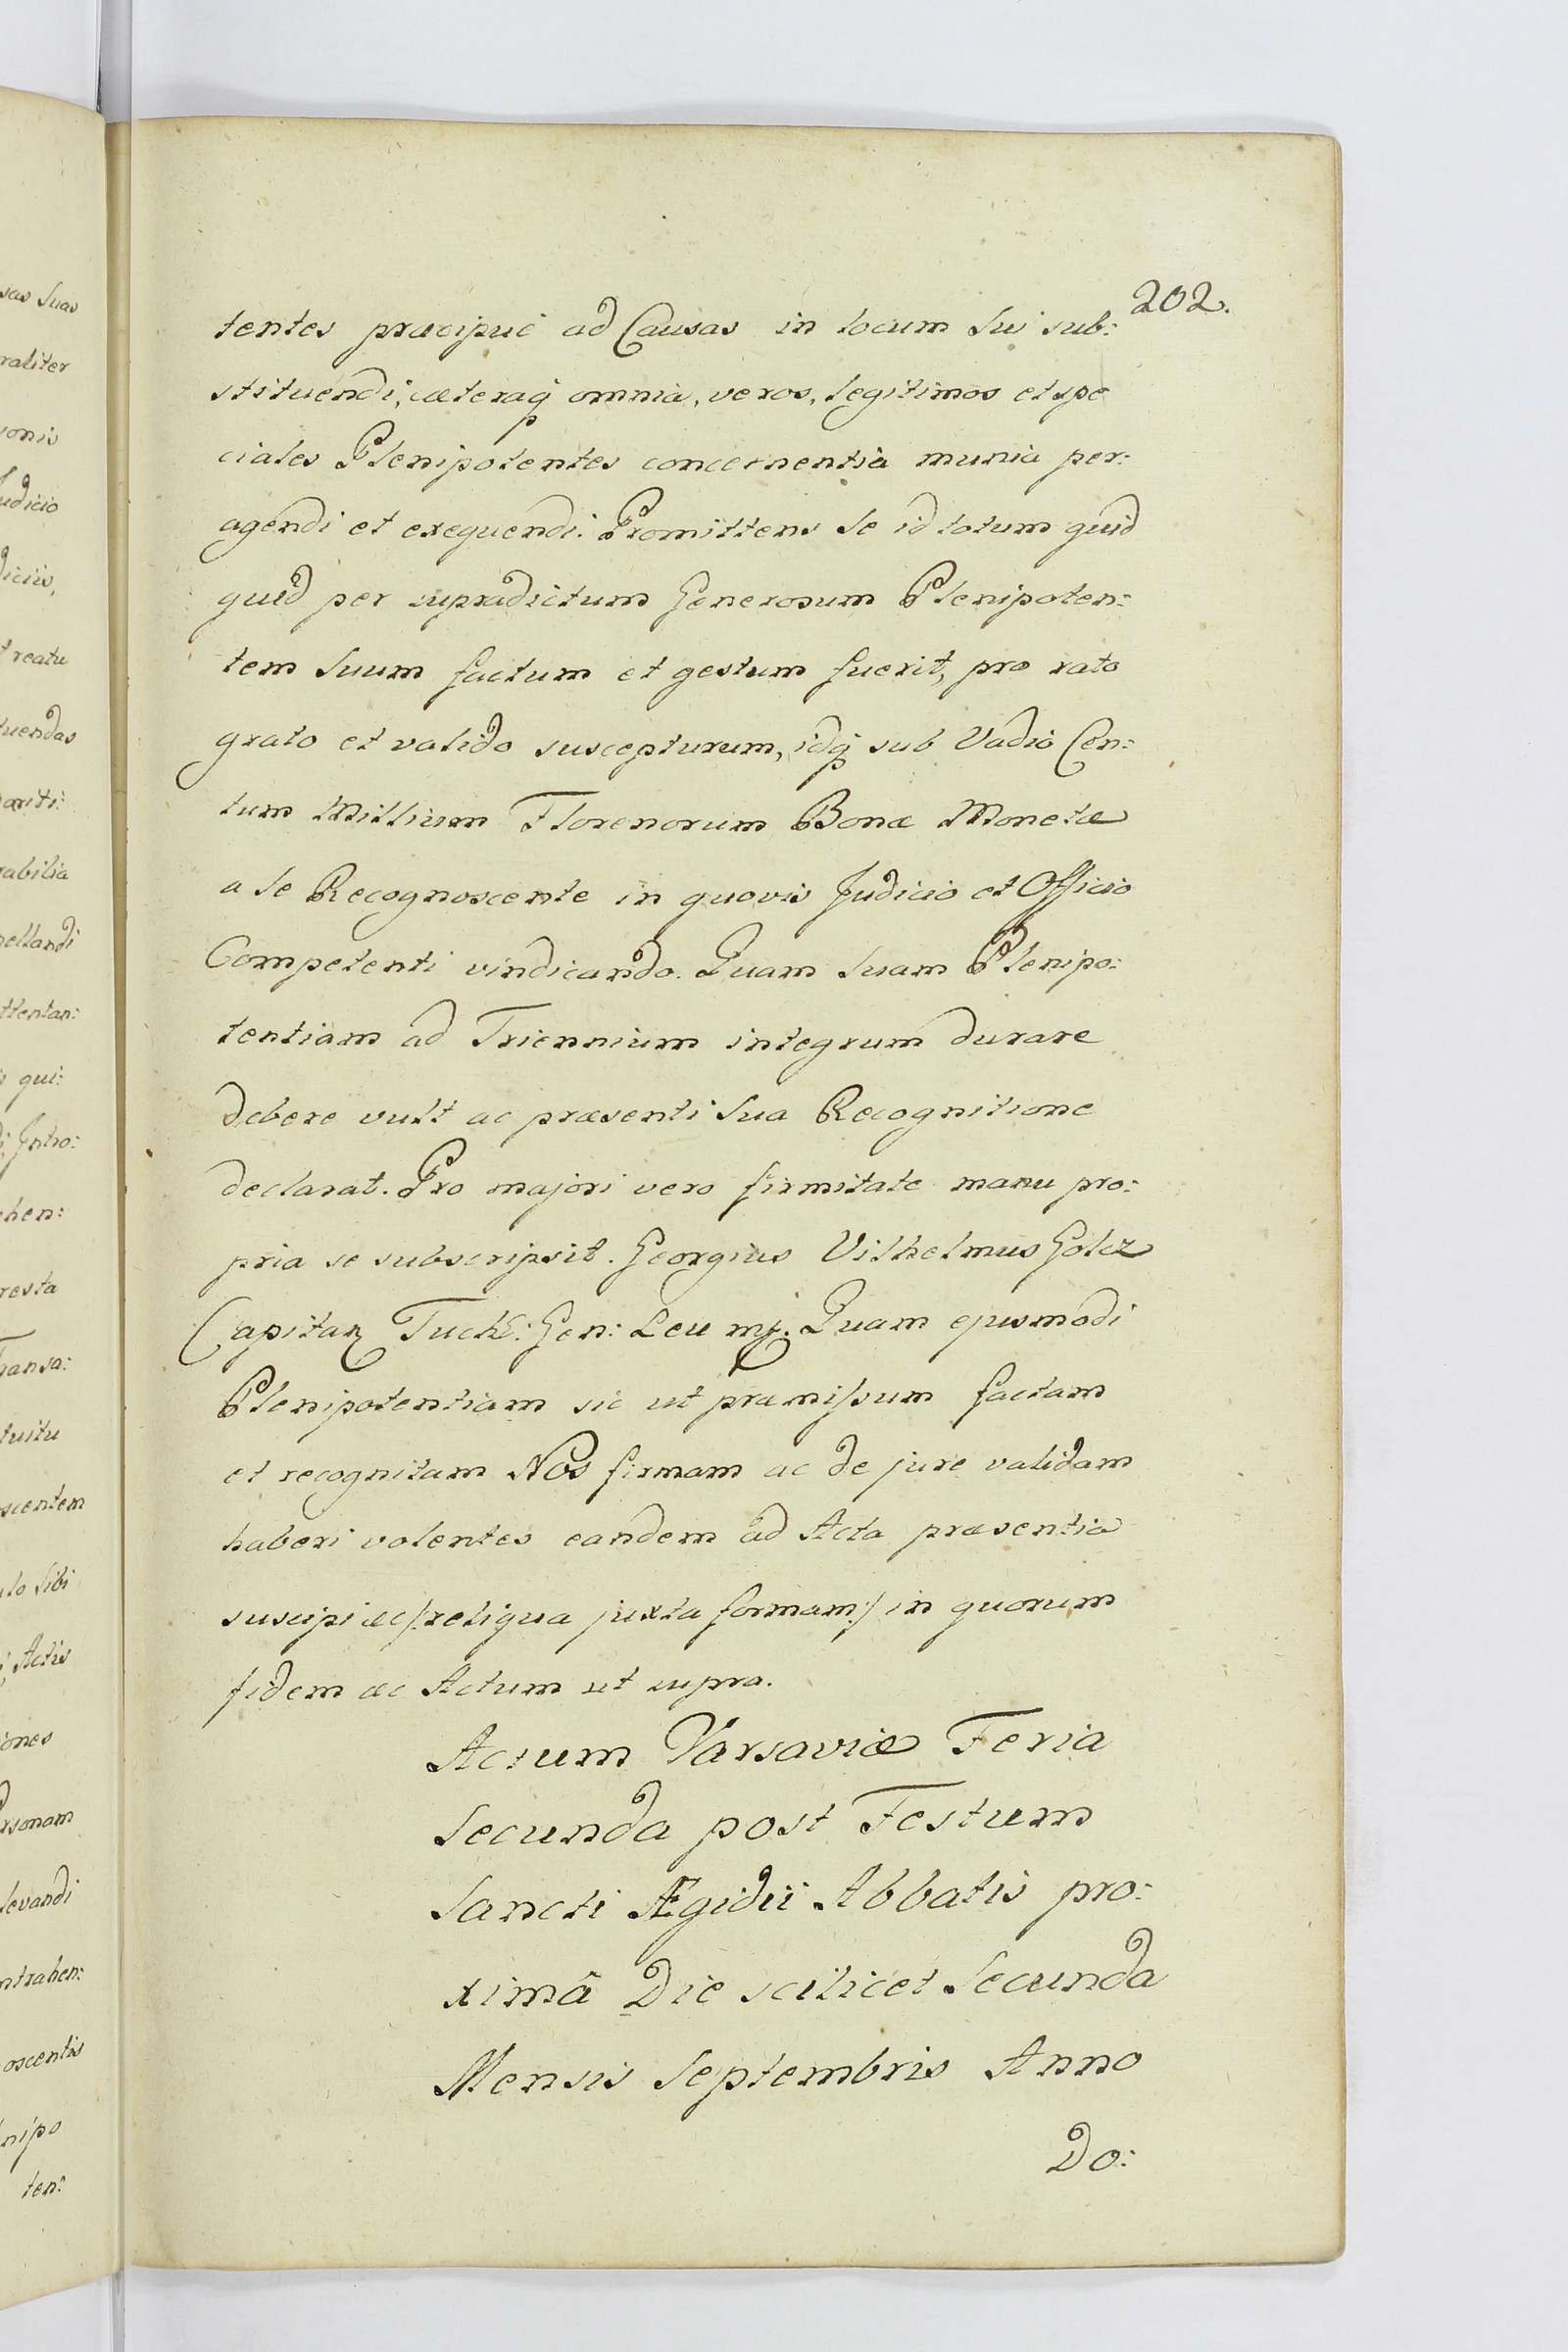 202.
tentes præcipue ad Causas in locum Sui sub:
stituendi, cæteraq omnia, veros, legitimos et spe
ciales Plenipotentes concernentia munia per:
agendi et exequendi. Promittens Se id totum quid
quid per supradictum Generosum Plenipoten:
tem Suum factum et gestum fuerit, pro rato
grato et valido suscepturum, idq sub Vadio Cen:
tum Millium Florenorum Bonæ Monetæ
a Se Recognoscente in quovis Judicio et Officio
Competenti vindicando. Quam Suam Plenipo:
tentiam ad Triennium integrum durare
debere vult ac præsenti Sua Recognitione
declarat. Pro majori vero firmitate manu pro:
pria se subscripsit. Georgius Vilhelmus Goltz
Capitan Tuch: Gen: Leu mp. Quam ejusmodi
Plenipotentiam sic ut præmissum factam
et recognitam Nos firmam ac de jure validam
haberi volentes eandem ad Acta præsentia
suscipi ac /:reliqua juxta formam:/ in quorum
fidem ac Actum ut supra.
Actum Varsaviæ Feria
Secunda post Festum
Sancti Ægidii Abbatis pro:
ximâ Die scilicet Secunda
Mensis Septembris Anno
Do:
sas Suas
raliter
onis
Judicio
diciis,
reatu
tuendas
rabilia
pellandi
ttentan:
qui:
Intro:
hen:
resta
Transa:
tuitu
scentem
lo Sibi
Actis
iones
Personam
levandi
ntrahen:
oscentis
nipo
ten: